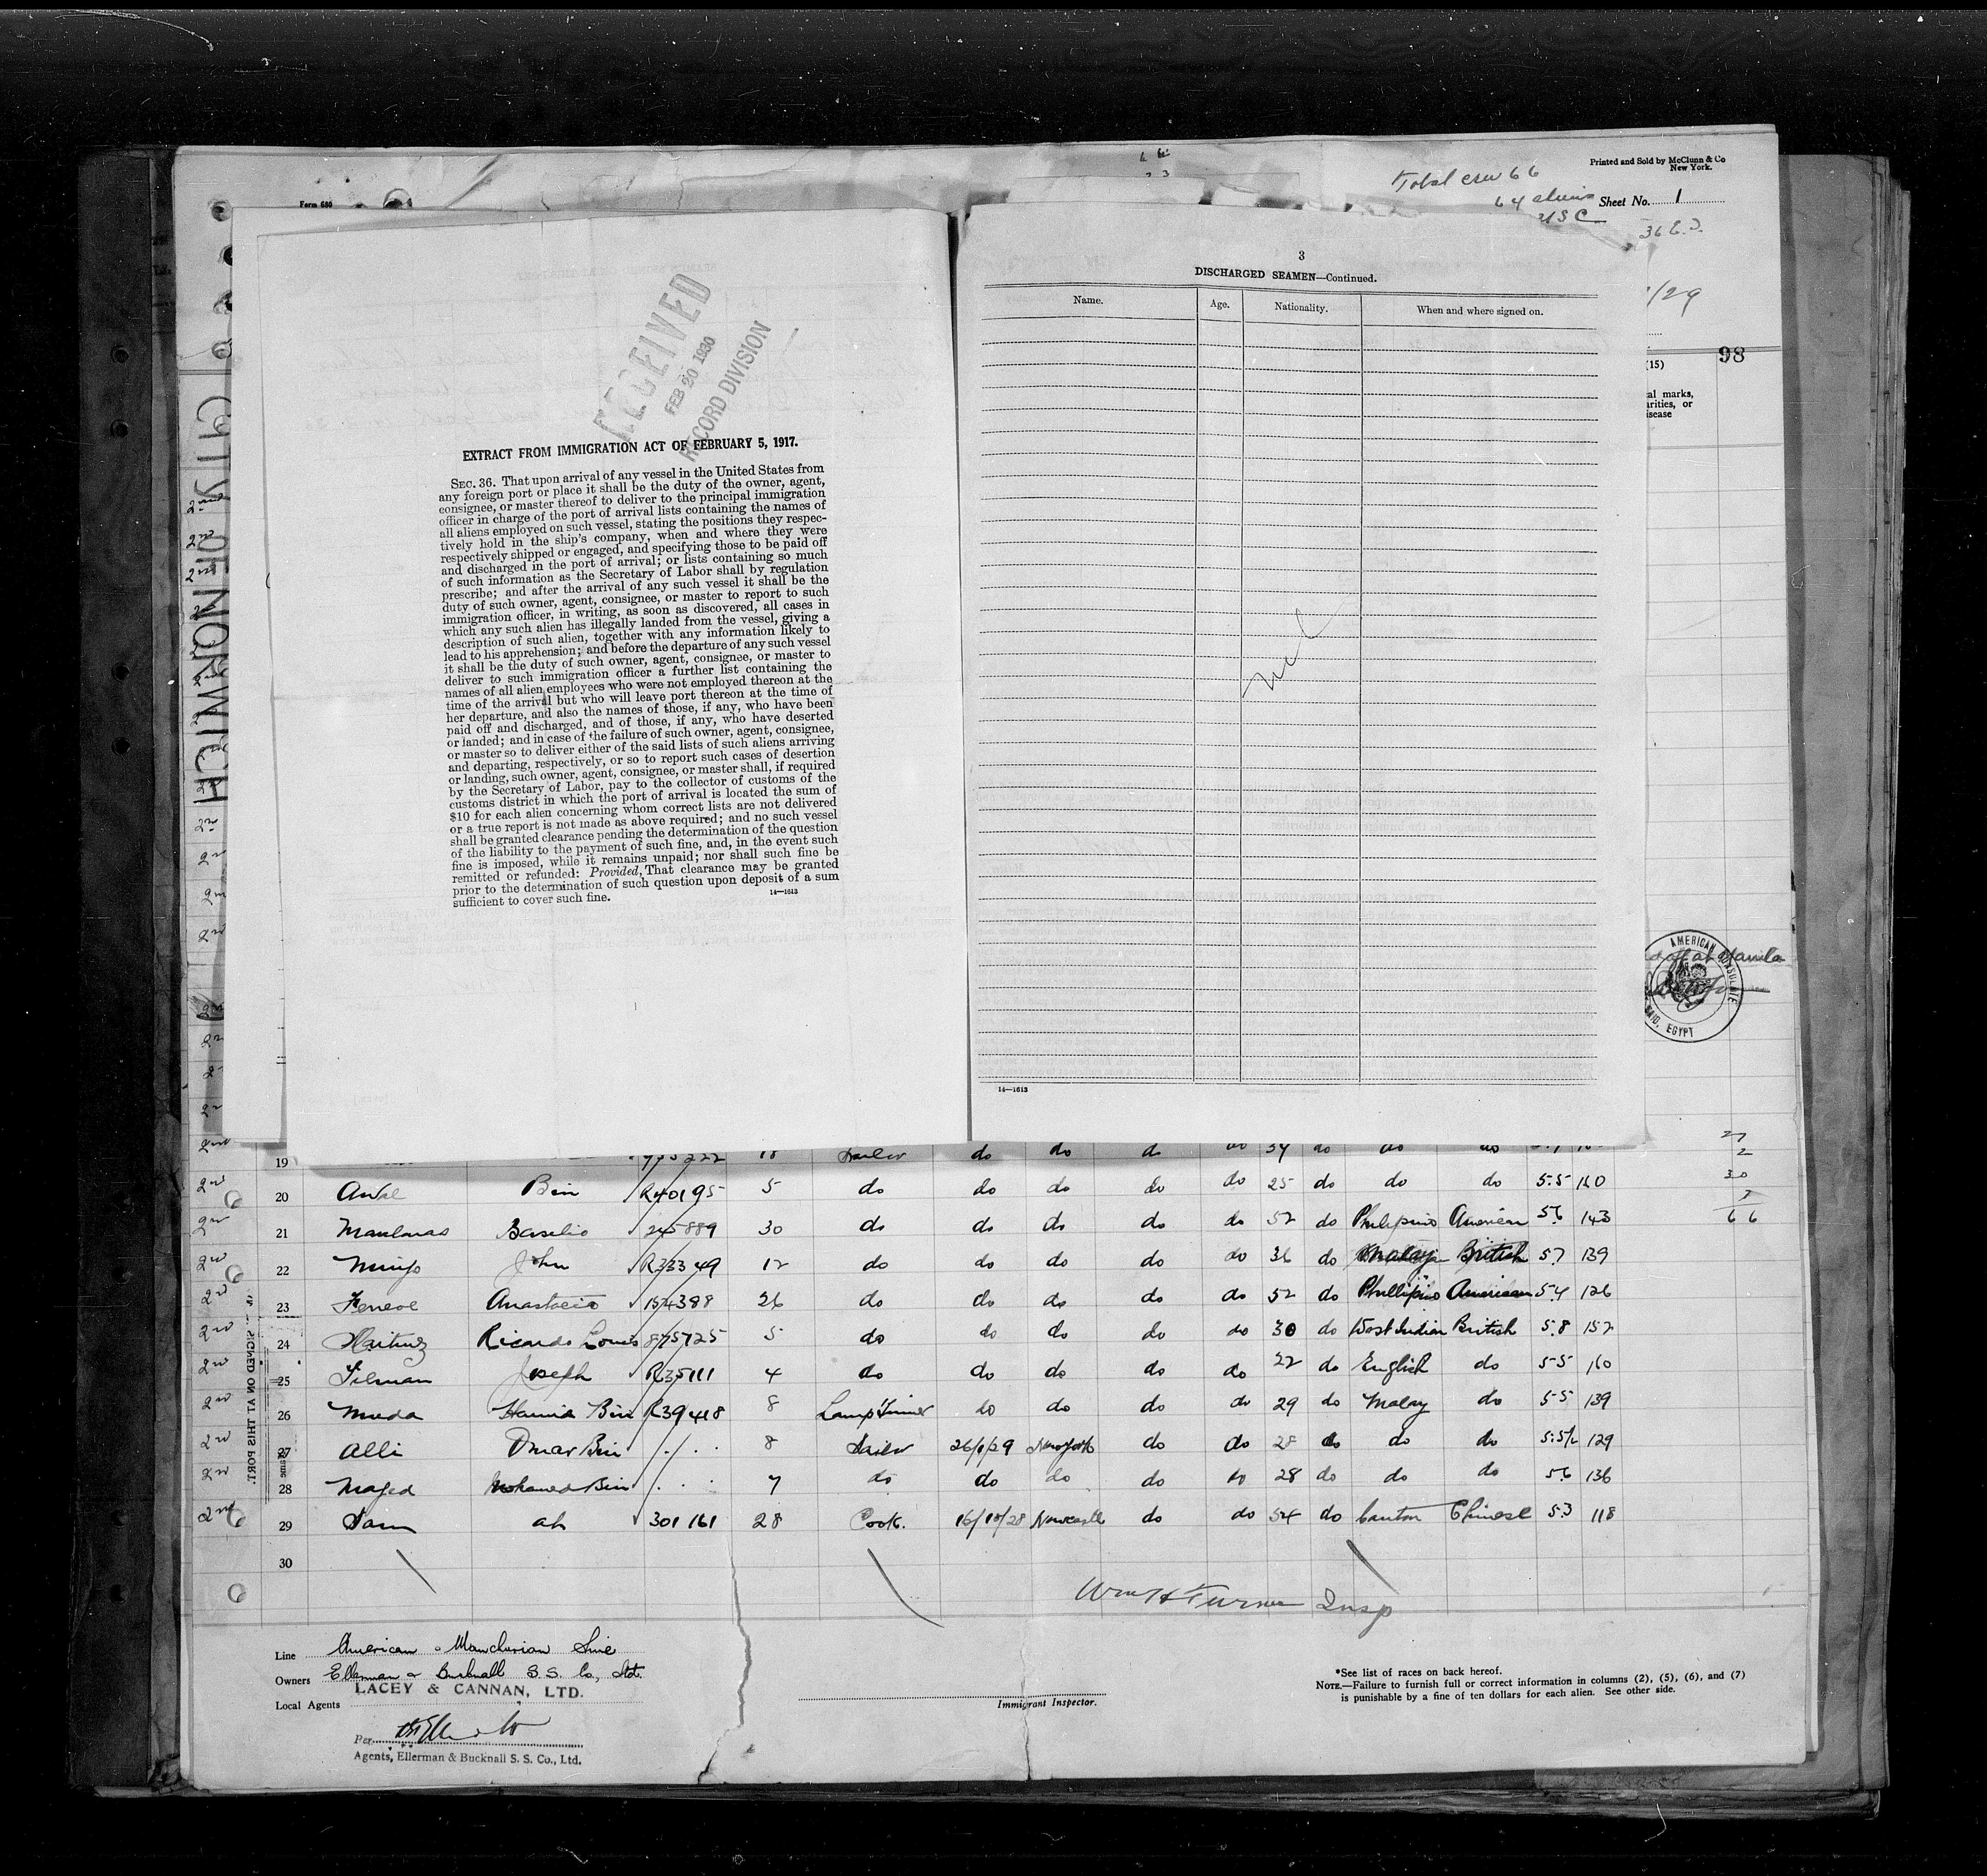 Printed and Sold by McClunn & Co
New York.
Total crew 66
64 aliens
Sheet No. 1
Form 680
98
(15)
al marks,
arities, or
isease
CITY OF NORWICH
RECEIVED
FEB 20 1930
RECORD DIVISION
EXTRACT FROM IMMIGRATION ACT OF FEBRUARY 5, 1917.
SEC. 36. That upon arrival of any vessel in the United States from
any foreign port or place it shall be the duty of the owner, agent,
consignee, or master thereof to deliver to the principal immigration
officer in charge of the port of arrival lists containing the names of
all aliens employed on such vessel, stating the positions they respec-
tively hold in the ship's company, when and where they were
respectively shipped or engaged, and specifying those to be paid off
and discharged in the port of arrival; or lists containing so much
of such information as the Secretary of Labor shall by regulation
prescribe; and after the arrival of any such vessel it shall be the
duty of such owner, agent, consignee, or master to report to such
immigration officer, in writing, as soon as discovered, all cases in
which any such alien has illegally landed from the vessel, giving a
description of such alien, together with any information likely to
lead to his apprehension; and before the departure of any such vessel
it shall be the duty of such owner, agent, consignee, or master to
deliver to such immigration officer a further list containing the
names of all alien employees who were not employed thereon at the
time of the arrival but who will leave port thereon at the time of
her departure, and also the names of those, if any, who have been
paid off and discharged, and of those, if any, who have deserted
or landed; and in case of the failure of such owner, agent, consignee,
or master so to deliver either of the said lists of such aliens arriving
and departing, respectively, or so to report such cases of desertion
or landing, such owner, agent, consignee, or master shall, if required
by the Secretary of Labor, pay to the collector of customs of the
customs district in which the port of arrival is located the sum of
$10 for each alien concerning whom correct lists are not delivered
or a true report is not made as above required; and no such vessel
shall be granted clearance pending the determination of the question
of the liability to the payment of such fine, and, in the event such
fine is imposed, while it remains unpaid; nor shall such fine be
remitted or refunded: Provided, That clearance may be granted
prior to the determination of such question upon deposit of a sum
sufficient to cover such fine.
14—1613
3
DISCHARGED SEAMEN—Continued.
Name. Age. Nationality. When and where signed on.
14—1613
AMERICAN CONSULATE
SAID, EGYPT
at Manila
19 18 Sailor do do do do 34 do do do
20 Bin R40195 5 do do do do do 25 do do do 5.5 160
21 Basilio 245889 30 do do do do do 52 do Philipino American 5.6 143
22 John R33349 12 do do do do do 36 do Malay British 5.7 139
23 Anastacio 154388 26 do do do do do 52 do Phillipino American 5.4 126
24 Ricardo Louis 875725 5 do do do do do 30 do West Indian British 5.8 152
25 Joseph R35111 4 do do do do do 22 do English do 5.5 160
26 Muda Hamid Bin R39418 8 Lamp Trimmer do do do do 29 do Malay do 5.5 139
27 Alli Omar Bin 8 Sailor 26/1/29 New York do do 28 do do do 5.5½ 129
28 Majed Mohamed Bin 7 do do do do do 28 do do do 5.6 136
29 Sam ah 301161 28 Cook. 16/10/28 Newcastle do do 54 do Canton Chinese 5.3 118
30
SIGNED ON AT THIS PORT.
30
66
Wm H Turner Insp
Line American & Manchurian Line
Owners Ellerman & Bucknall S.S. Co., Ltd.
LACEY & CANNAN, LTD.
Local Agents
Per
Agents, Ellerman & Bucknall S. S. Co., Ltd.
Immigrant Inspector.
*See list of races on back hereof.
NOTE.—Failure to furnish full or correct information in columns (2), (5), (6), and (7)
is punishable by a fine of ten dollars for each alien. See other side.